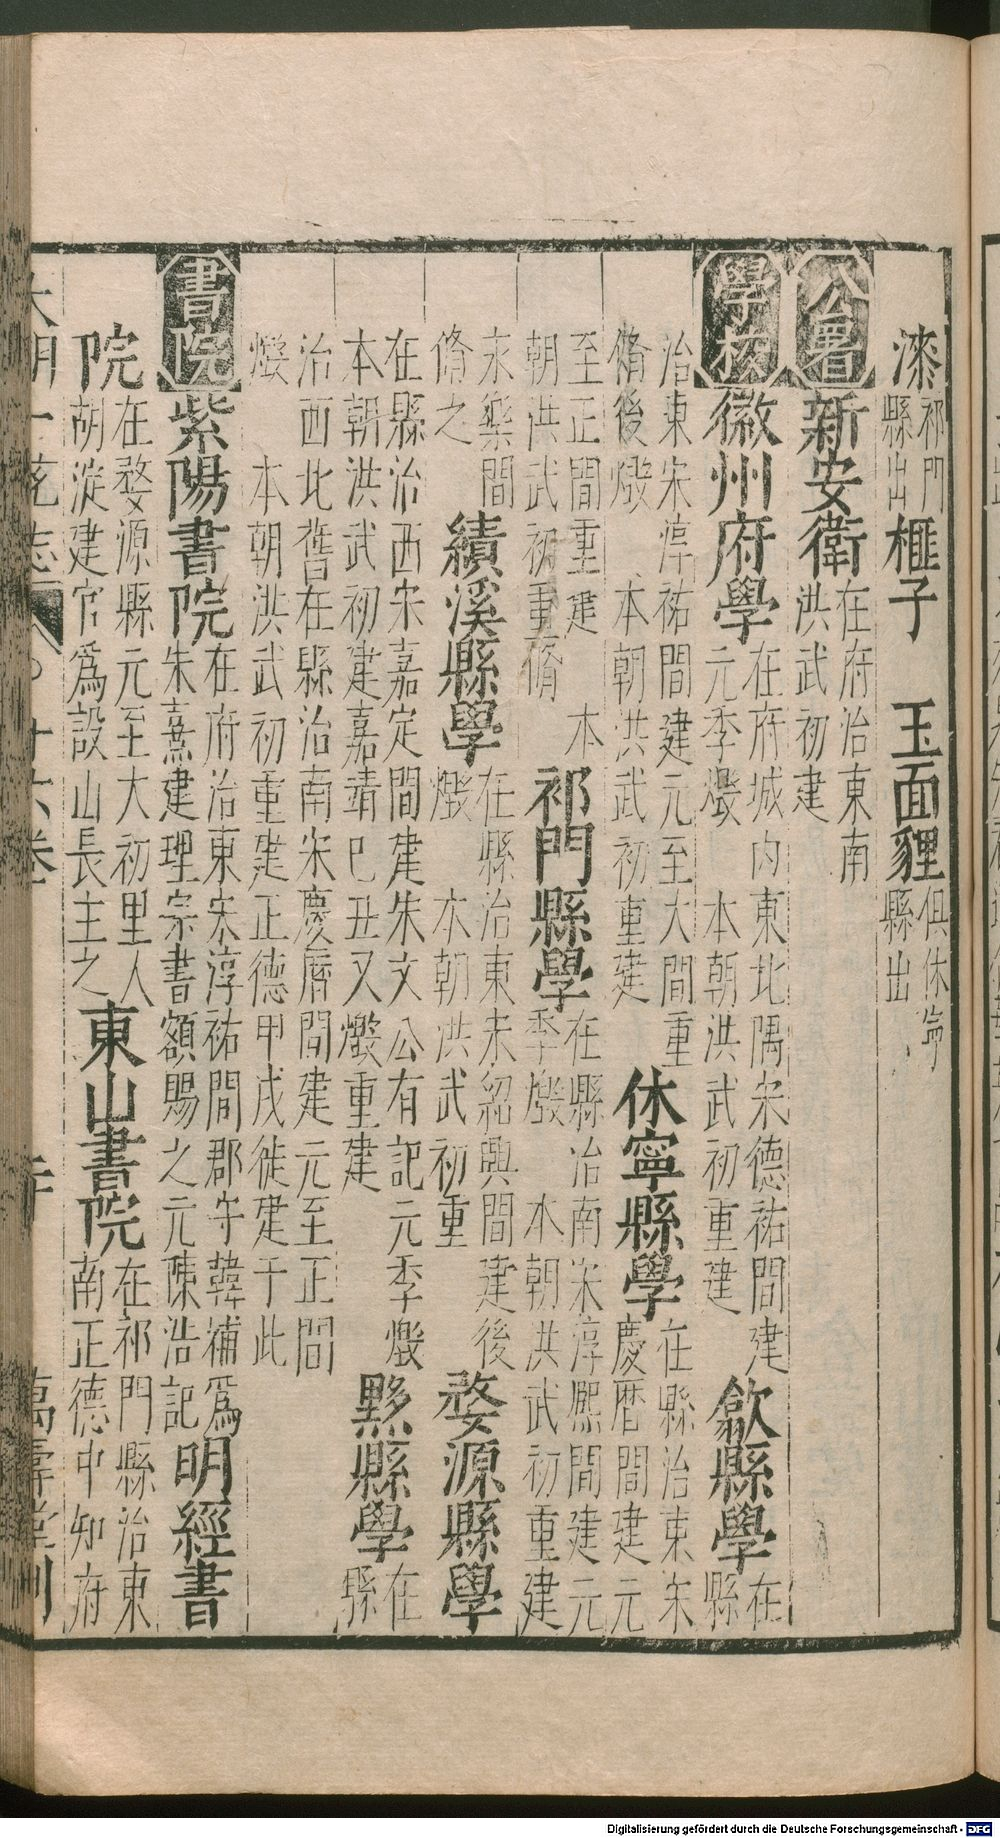 漆祁門縣出榧子　玉面貍俱休寧縣出
公署新安衛在府治東南洪武初建
學校徽州府學在府城内東北隅宋德祐間建元季燬　本朝洪武初重建歙縣學在縣
治東宋淳祐間建元至大間重脩後燬　本朝洪武初重建休寧縣學在縣治東宋慶曆間建元
至正間重建　本朝洪武初重脩祁門縣學在縣治南宋淳熈間建元季燬　本朝洪武初重建
永樂間脩之績溪縣學在縣治東宋紹興間建後燬　本朝洪武初重婺源縣學
在縣治西宋嘉定間建朱文公有記元季燬本朝洪武初建嘉靖巳丑又燬重建黟縣學在縣
治西北舊在縣治南宋慶曆間建元至正間燬　本朝洪武初重建正德甲戌徙建于此
書院紫陽書院在府治東宋淳祐間郡守韓補爲朱熹建理宗書額賜之元陳浩記明經書
院在婺源縣元至大初里人胡淀建官爲設山長主之東山書院在祁門縣治東南正德中知府
大明一統志　十六卷　萬壽堂刊
Digitalisierung gefördert durch die Deutsche Forschungsgemeinschaft - DFG